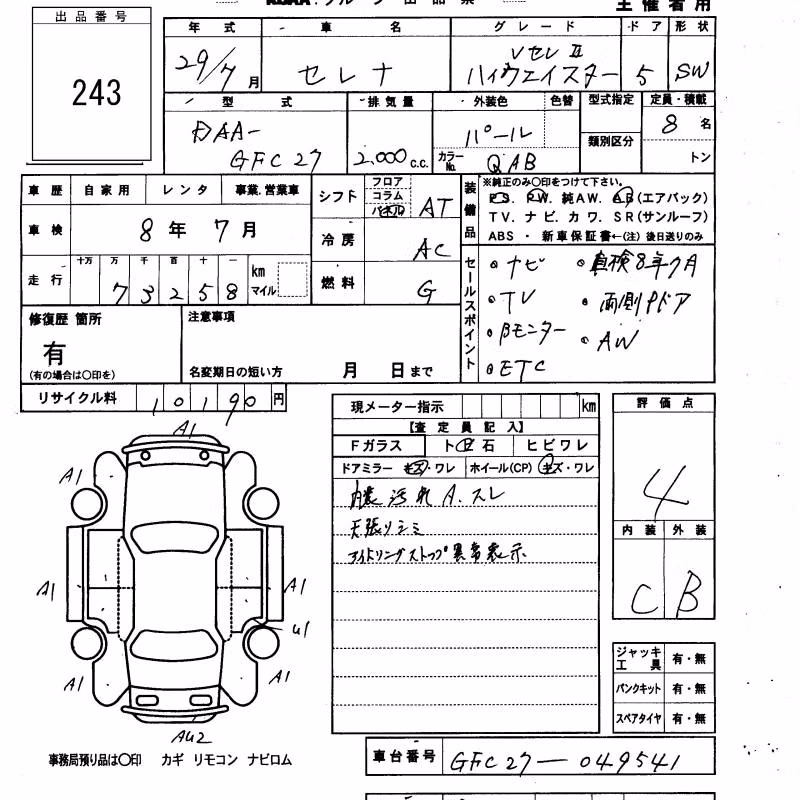 主催者用
出品番号
243
年式 車名 グレード ドア 形状
29/7月 セレナ VセレⅡ ハイウェイスター 5 SW
型式 排気量 外装色 色替 型式指定 定員・積載
DAA-
GFC27 2.000c.c. パール 類別区分 8名
カラーNo. QAB トン
車歴 自家用 レンタ 事業.営業車
車検 8年7月
走行 十万 万 千 百 十 一
73258 km マイル
シフト フロア コラム パネル AT
冷房 AC
燃料 G
装備品
※純正のみ〇印をつけて下さい。
P.S. P.W. 純AW. AB(エアバック)
TV. ナビ. カワ. SR(サンルーフ)
ABS ・ 新車保証書←(注) 後日送りのみ
セールスポイント
ナビ 車検8年7月
TV 両側Pドア
βモニター AW
ETC
修復歴 箇所
有
(有の場合は〇印を)
注意事項
名変期日の短い方 月 日まで
リサイクル料 10190円
現メーター指示 km
【査定員記入】
Fガラス ト ビ 石 ヒビワレ
ドアミラー キズ・ワレ ホイール(CP) キズ・ワレ
内装汚れ A.スレ
天張りシミ
アイドリングストップ異常表示
評価点
4
内装 外装
C B
ジャッキ工具 有・無
パンクキット 有・無
スペアタイヤ 有・無
A1
A1
A1 A1
U1
A1 A1
AU2
事務局預り品は〇印 カギ リモコン ナビロム
車台番号 GFC27-049541